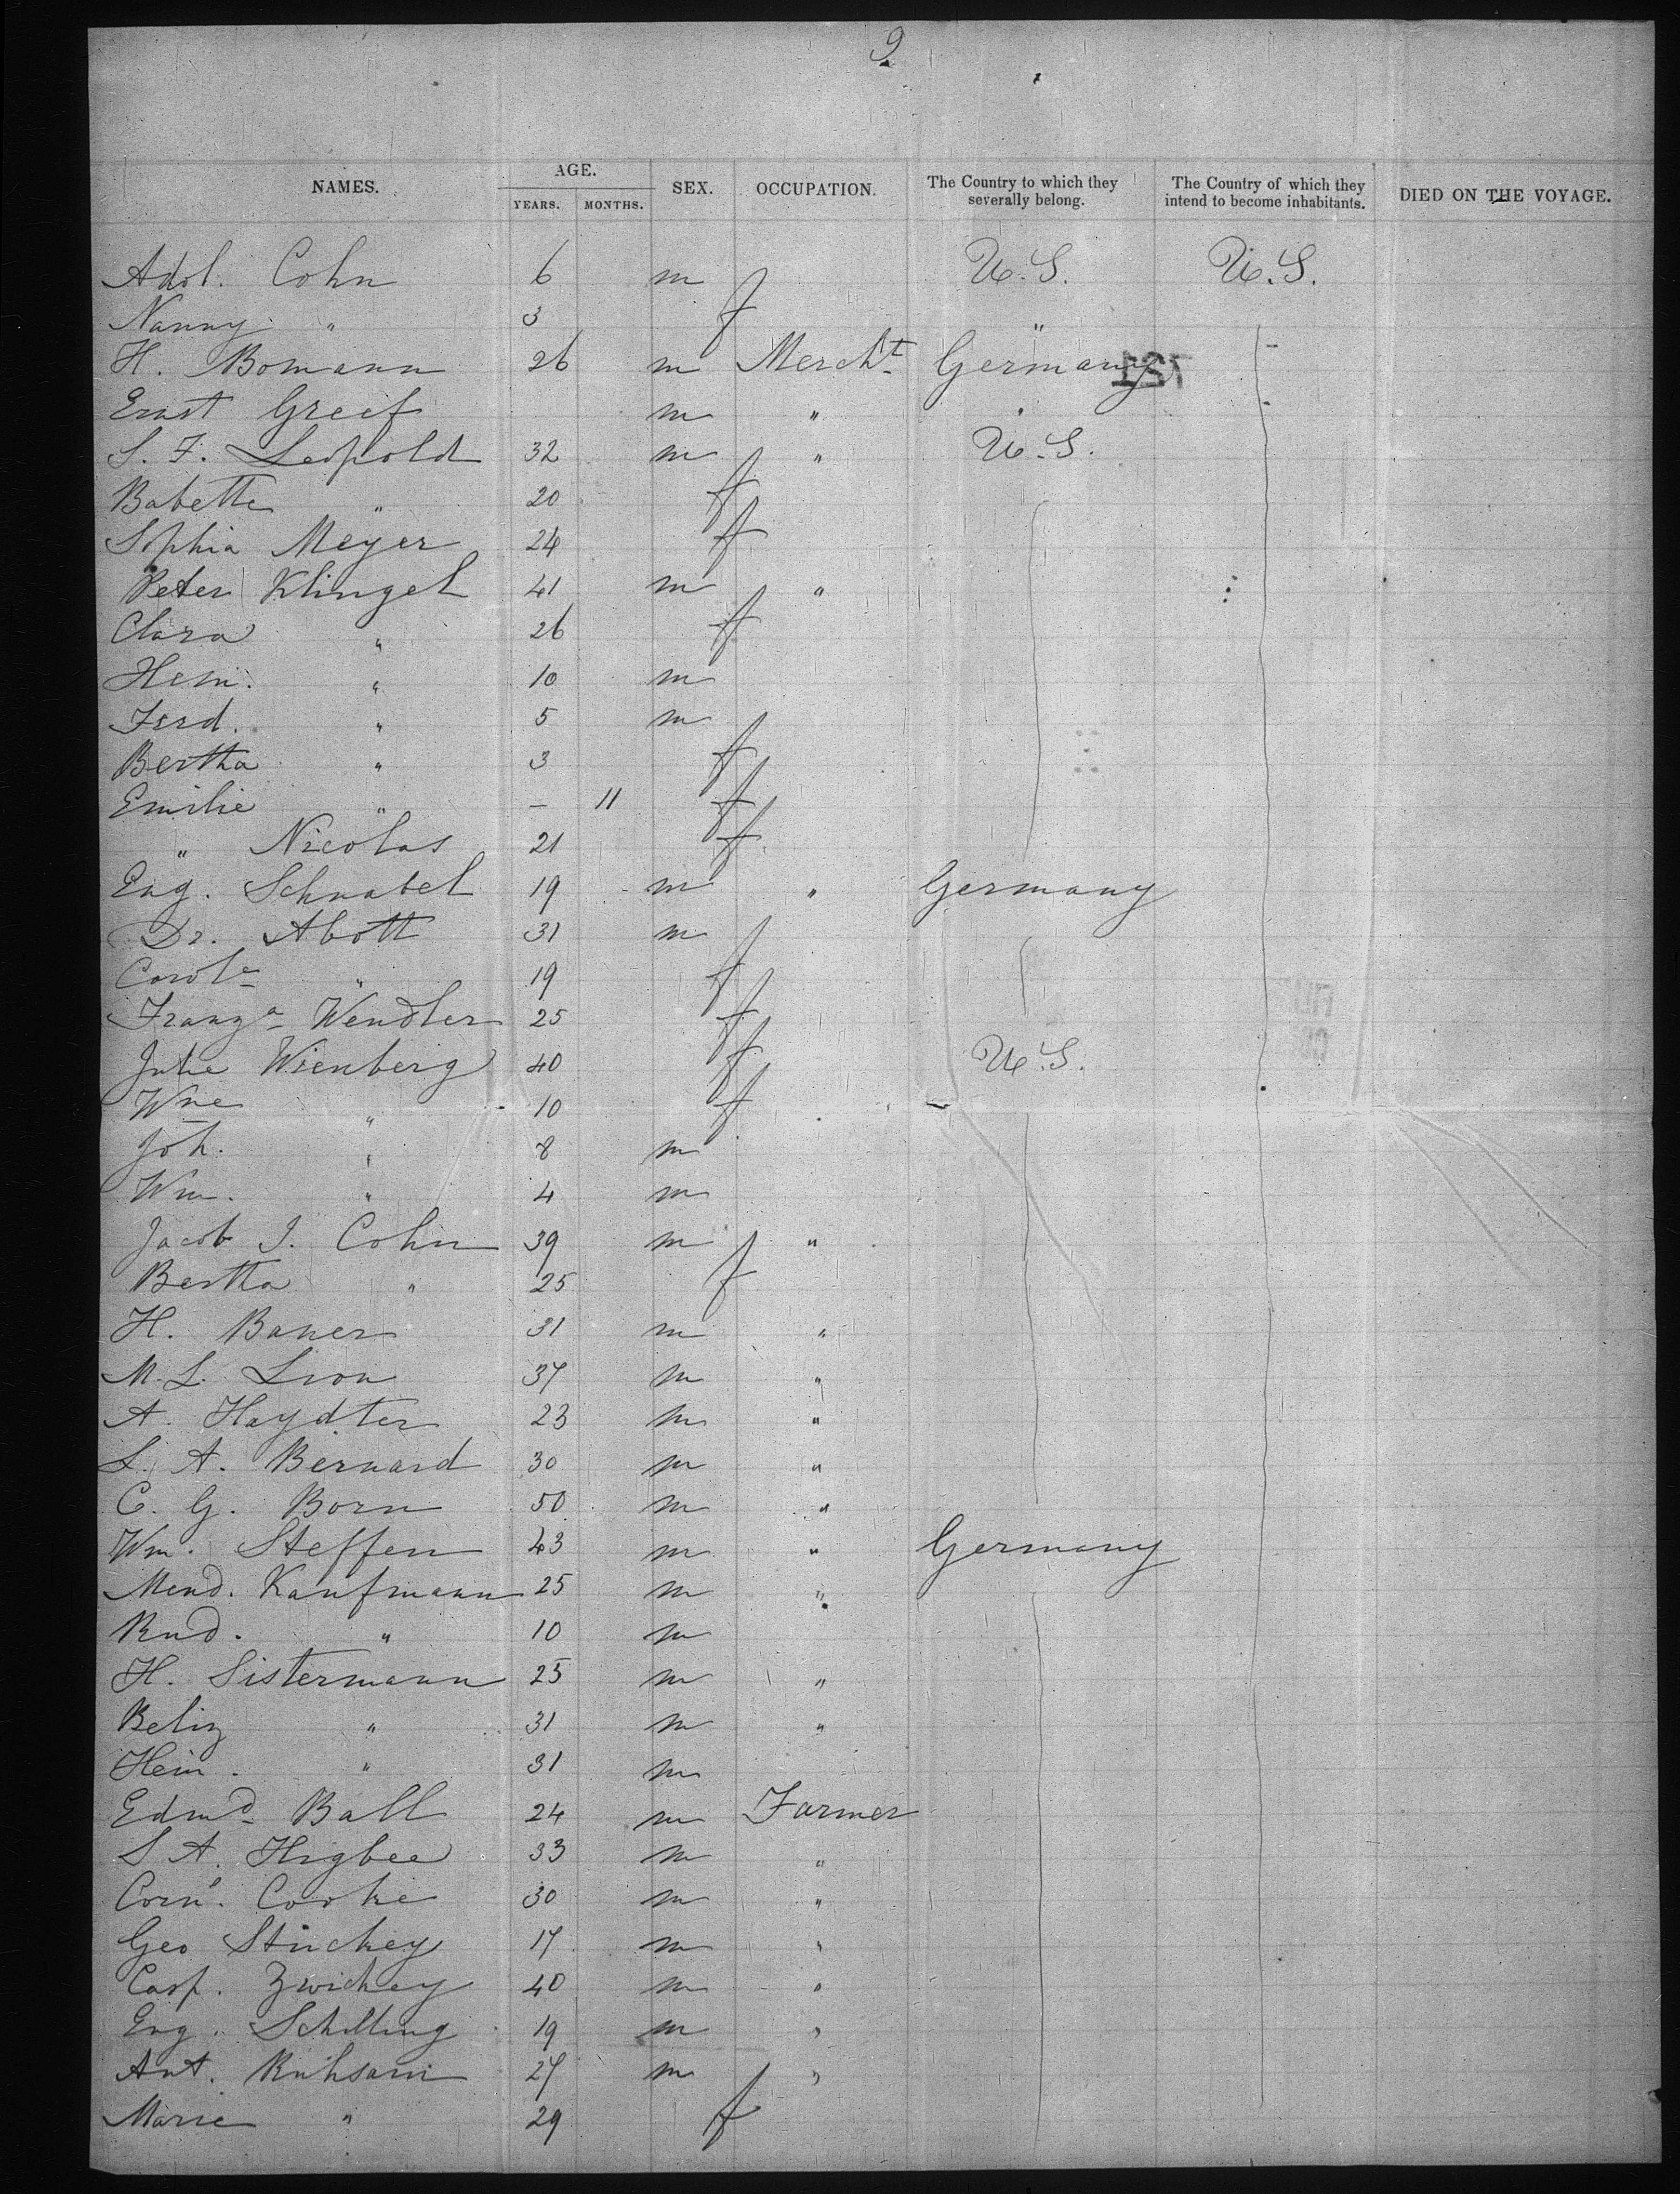 9
NAMES. AGE. SEX. OCCUPATION. The Country to which they severally belong. The Country of which they intend to become inhabitants. DIED ON THE VOYAGE.
YEARS. MONTHS.
Adol. Cohn 6 m U.S. U.S.
Nanny " 3 f "
H. Bomann 26 m Mercht Germany
Ernst Greef m " "
S. F. Leopold 32 m " U.S.
Babette " 20 f
Sophia Meyer 24 f
Peter Klingel 41 m "
Clara " 26 f
Hein. " 10 m
Ferd. " 5 m
Bertha " 3 f
Emilie " – 11 f
" Nicolas 21 f
Eug. Schnabel 19 m " Germany
Dr. Abott 31 m
Carole " 19 f
Franza Wendler 25 f
Julie Wienberg 40 f U.S.
Wne " 10 f
Joh. " 8 m
Wm. " 4 m
Jacob J. Cohn 39 m "
Bertha " 25 f
H. Bauer 31 m "
M. L. Lion 37 m "
A. Haydter 23 m "
L. A. Bernard 30 m "
C. G. Born 50 m "
Wm. Steffen 43 m " Germany
Mend. Kaufmann 25 m "
Rud. " 10 m
H. Sistermann 25 m "
Beliz " 31 m "
Hein. " 31 m
Edmd Ball 24 m Farmer
S A. Higbee 33 m "
Corns. Cooke 30 m "
Geo Stuckey 17 m "
Casp. Zwickey 40 m "
Eug. Schilling 19 m "
Ant. Ruhsam 27 m "
Marie " 29 f